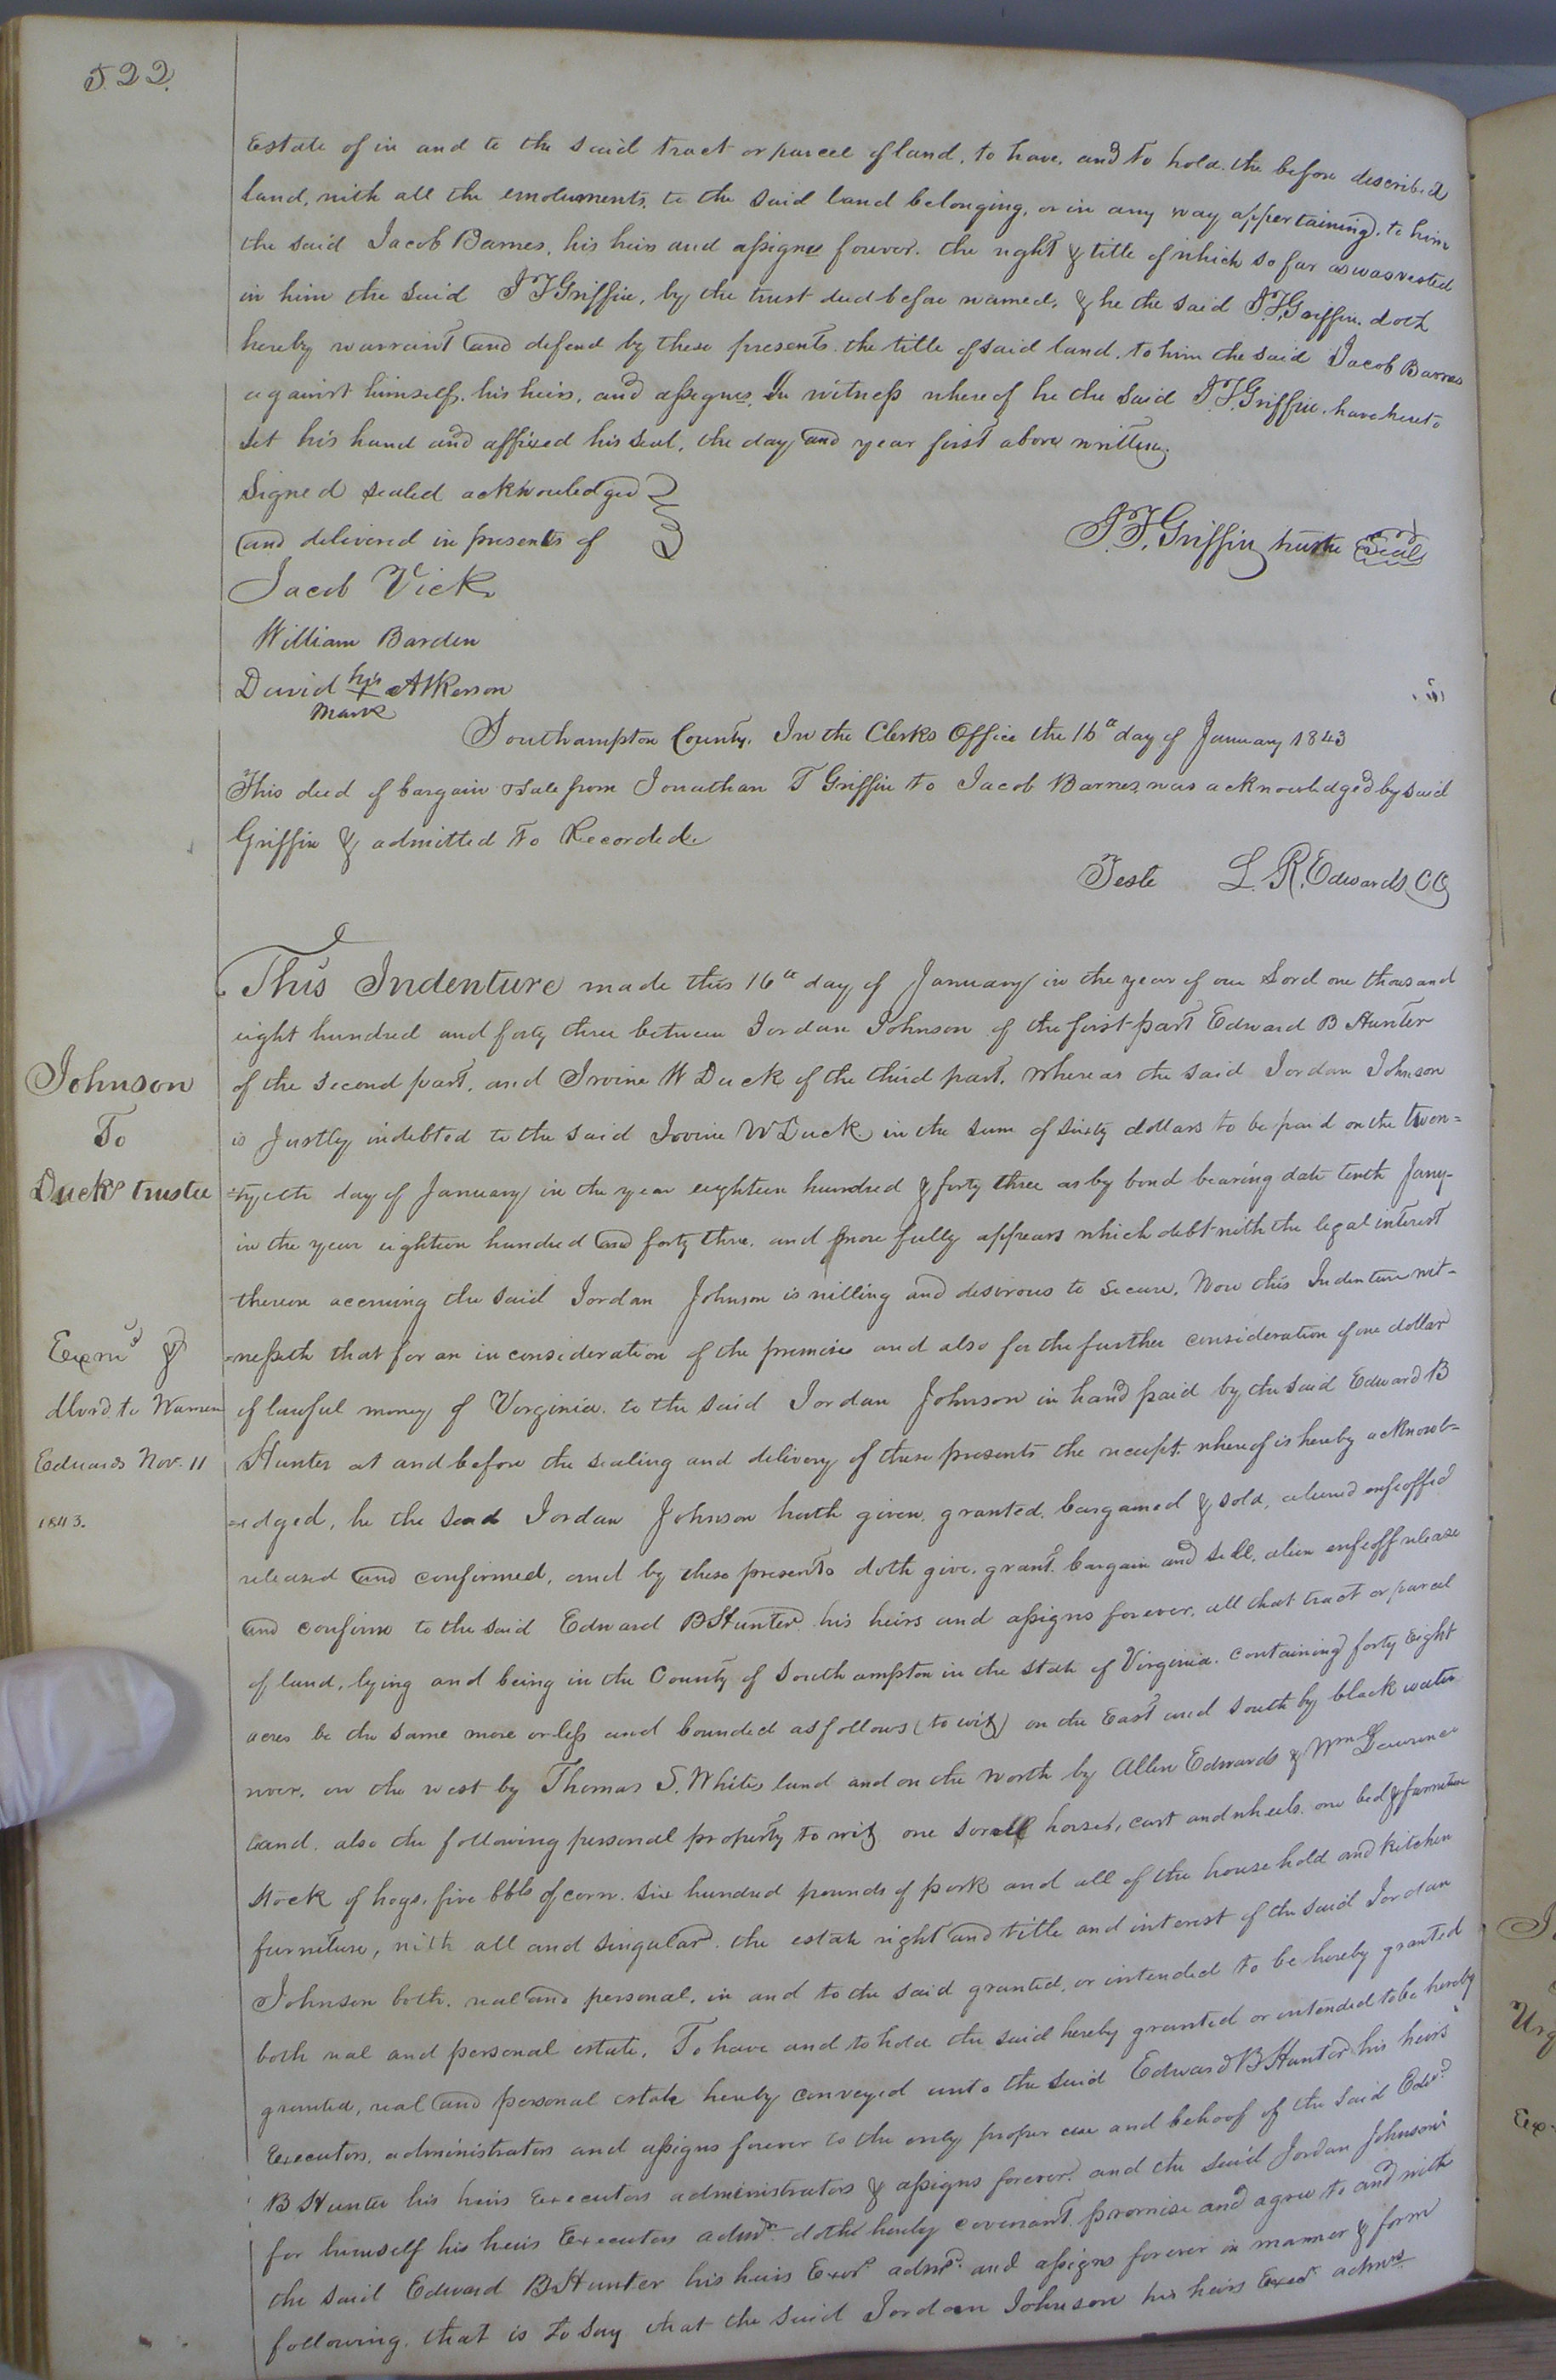 522.
Estate of in and to the said tract or parcel of land, to have, and to hold. the before described
land, with all the emoluments, to the said land belonging, or in any way appertaining, to him
the said Jacob Barnes, his heirs and assignes forever. the right & title of which so far as was vested
in him the said J T Griffin, by the trust deed before named, & he the said J. T. Griffin. doth
hereby warrant and defend by these presents the title of said land, to him the said Jacob Barnes
against himself, his heirs, and assignes. In witness whereof he the said J. T. Griffin. have hereto
set his hand and affixed his seal, the day and year first above written.
Signed sealed acknowledged
and delivered in presents of
J. T. Griffin trustee Seal
Jacob Vick
William Barden
David his Atkerson
X
mark
Southampton County. In the Clerks Office the 16th day of January 1843
This deed of bargain & sale from Jonathan T Griffin to Jacob Barnes, was acknowledged by said
Griffin & admitted to Recorded.
Teste L. R. Edwards CC
This Indenture made this 16th day of January in the year of our Lord one thousand
eight hundred and forty three between Jordan Johnson of the first part Edward B Hunter
Johnson
To
Duck's trustee
of the second part, and Irvine W Duck of the third part. Whereas the said Jordan Johnson
is Justly indebted to the said Irvine W Duck in the sum of sixty dollars to be paid on the twen=
=tyeth day of January in the year eighteen hundred & forty three as by bond bearing date tenth Jany-
in the year eighteen hundred and forty three. and more fully appears which debt with the legal interest
thereon accruing the said Jordan Johnson is willing and desirous to secure, Now this Indenture wit-
Exmd &
dlvrd to Warren
Edwards Nov. 11
1843.
=nesseth that for an in consideration of the premises and also for the further consideration of one dollar
of lawful money of Virginia. to the said Jordan Johnson in hand paid by the said Edward B
Hunter at and before the sealing and delivery of these presents the receipt whereof is hereby acknowl=
=edged, he the said Jordan Johnson hath given, granted, bargained & sold, aliened enfeoffed
released and confirmed, and by these presents doth give, grant, bargain and sell, alien enfeoff release
and confirm to the said Edward B Hunter his heirs and assigns forever, all that tract or parcel
of land, lying and being in the County of Southampton in the state of Virginia. containing forty Eight
acres be the same more or less and bounded as follows (to wit) on the East and south by black water
river, on the west by Thomas S. Whites land and on the North by Allen Edwards & Wm Lawrence
land. also the following personal property to wit one sorell horse, cart and wheels. one bed & furniture
stock of hogs, five bbls of corn. six hundred pounds of pork and all of the household and kitchen
furniture, with all and singular. the estate right and title and interest of the said Jordan
Johnson both. real and personal, in and to the said granted, or intended to be hereby granted
both real and personal estate, To have and to hold the said hereby granted or intended to be hereby
granted, real and personal estate hereby conveyed unto the said Edward B Hunter his heirs
Executors, administrators and assigns forever to the only proper use and behoof of the said Edwd.
B Hunter his heirs Executors administrators & assigns forever. and the said Jordan Johnson
for himself his heirs Executors admrs. doth hereby covenant, promise and agree to and with
the said Edward B Hunter his heirs Exors. admrs. and assigns forever in manner & form
following. that is to say that the said Jordan Johnson his heirs Exors admrs